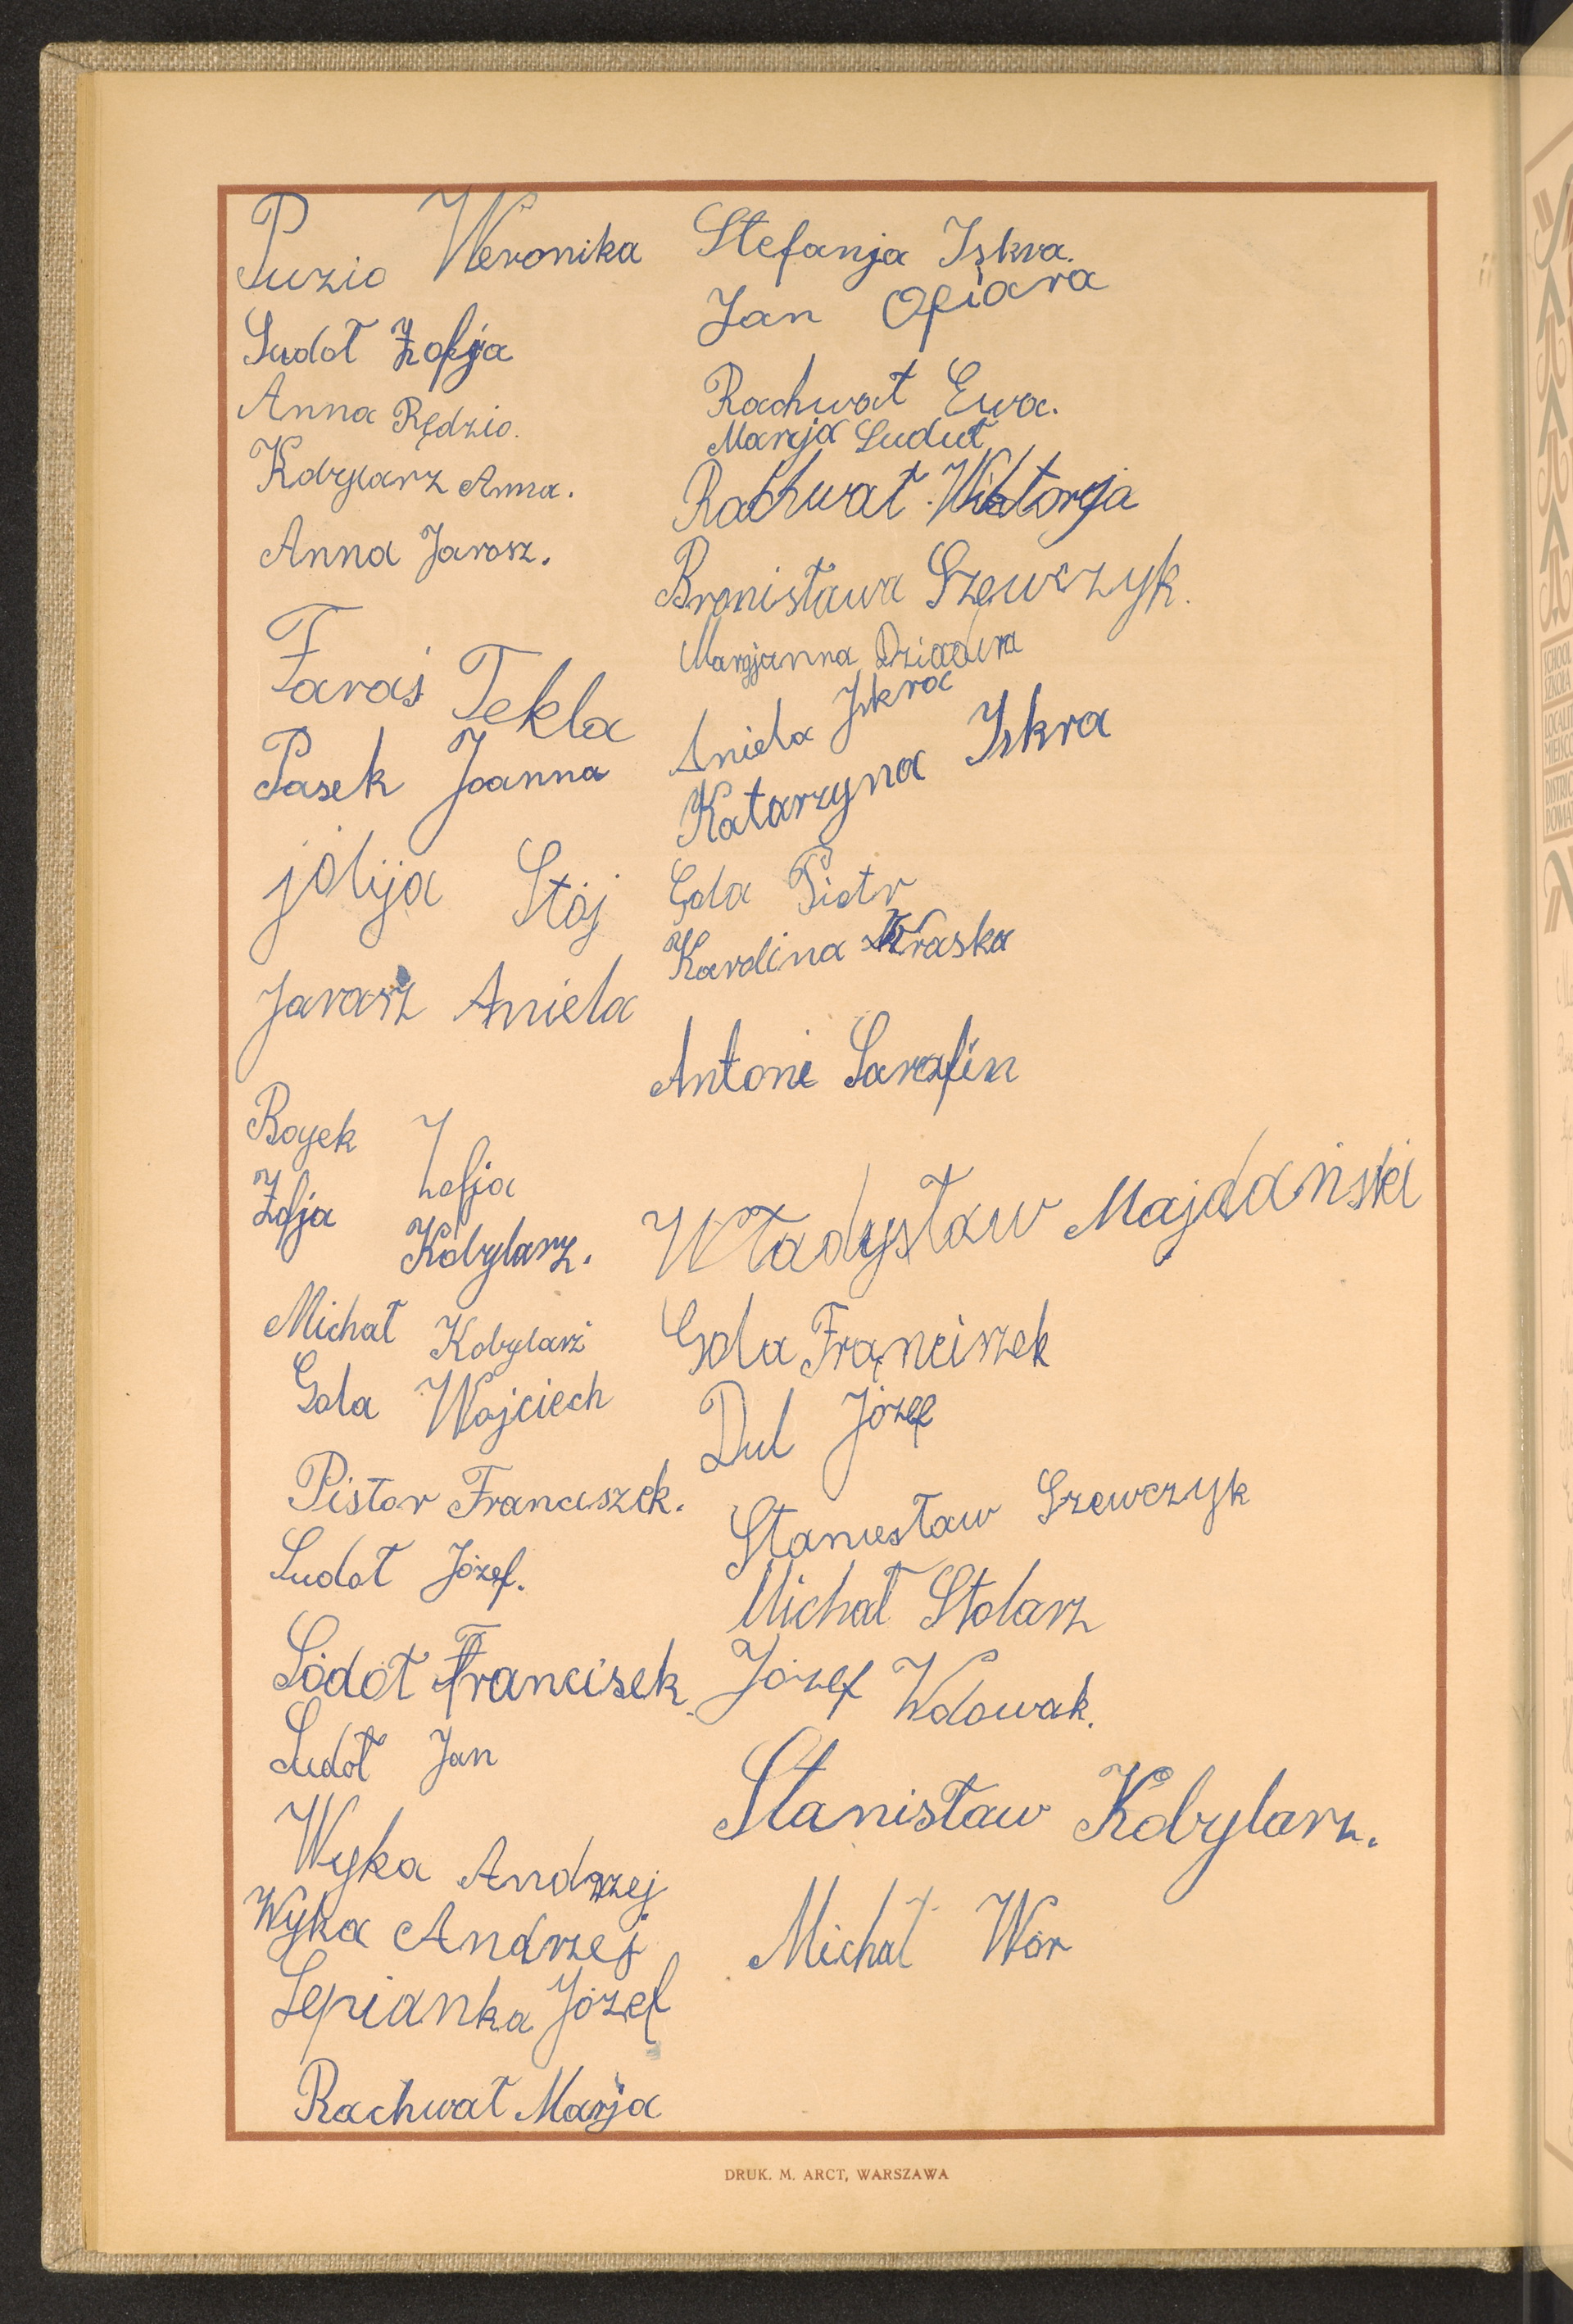 Puzio Weronika
Sudoł Zofja
Anna Rędzio.
Kobylarz Anna.
Anna Jarosz.
Faraś Tekla
Pasek Joanna
jólija Stój
Jarosz Aniela
Bąjek Zofja
Zofja Kobylarz.
Michał Kobylarz
Gola Wojciech
Pistor Franciszek.
Sudoł Józef.
Sódół Francisek
Sudoł Jan
Wyka Andrzej
Wyka Andrzej
Lepianka Józef
Rachwał Marja
Stefanja Iskra.
Jan Ofiara
Rachwał Ewa.
Marja Suduł
Rachwał Wiktorja
Bronisława Szewczyk.
Marjanna Dziadura
Aniela Iskra
Katarzyna Iskra
Gola Piotr
Karolina Kraska
Antoni Sarafin
Władysław Majdański
Gola Franciszek
Dul Józef
Stanisław Szewczyk
Michał Stolarz
Józef Wdowak.
Stanisław Kobylarz.
Michał Wór
DRUK. M. ARCT, WARSZAWA